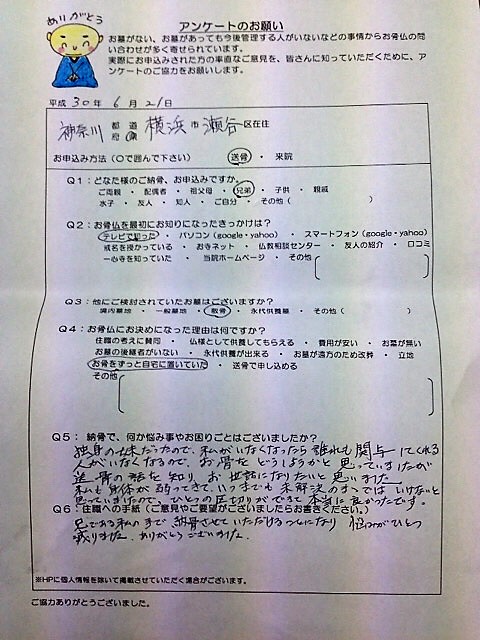 ありがとう
アンケートのお願い
お墓がない、お墓があっても今後管理する人がいないなどの事情からお骨仏の問
い合わせが多く寄せられています。
実際にお申込みされた方の率直なご意見を、皆さんに知っていただくために、ア
ンケートのご協力をお願いします。
平成 30年 6月 21日
神奈川 都道府県 横浜市 瀬谷区在住
お申込み方法(○で囲んで下さい) 送骨 ・ 来院
Q1:どなた様のご納骨、お申込みですか。
ご両親 ・ 配偶者 ・ 祖父母 ・ 兄弟 ・ 子供 ・ 親戚
水子 ・ 友人 ・ 知人 ・ ご自分 ・ その他( )
Q2:お骨仏を最初にお知りになったきっかけは?
テレビで知った ・ パソコン(google・yahoo) ・ スマートフォン(google・yahoo)
戒名を授かっている ・ お寺ネット ・ 仏教相談センター ・ 友人の紹介 ・ 口コミ
一心寺を知っていた ・ 当院ホームページ ・ その他
Q3:他にご検討されていたお墓はございますか?
境内墓地 ・ 一般墓地 ・ 散骨 ・ 永代供養墓 ・ その他( )
Q4:お骨仏にお決めになった理由は何ですか?
住職の考えに賛同 ・ 仏様として供養してもらえる ・ 費用が安い ・ お墓が無い
お墓の後継者がいない ・ 永代供養が出来る ・ お墓が遠方のため改葬 ・ 立地
お骨をずっと自宅に置いていた ・ 送骨で申し込める
その他
Q5: 納骨で、何か悩み事やお困りごとはございましたか?
独身の妹だったので、私がいなくなったら誰れも関与してくれる
人がいなくなるので、お骨をどうしようかと思っていましたが
送骨の話を知り、お世話になりたいと思いました
私も身体が弱ってきていつまでも未解決のままではいけないと
思っていましたので、ひとつの区切りができて本当に良かったです。
Q6:住職への手紙(ご意見やご要望がございましたらお書きください。)
兄である私のまで納骨させていただけることになり 悩みがひとつ
減りました。ありがとうございました。
※HPに個人情報を除いて掲載させていただく場合がございます。
ご協力ありがとうございました。